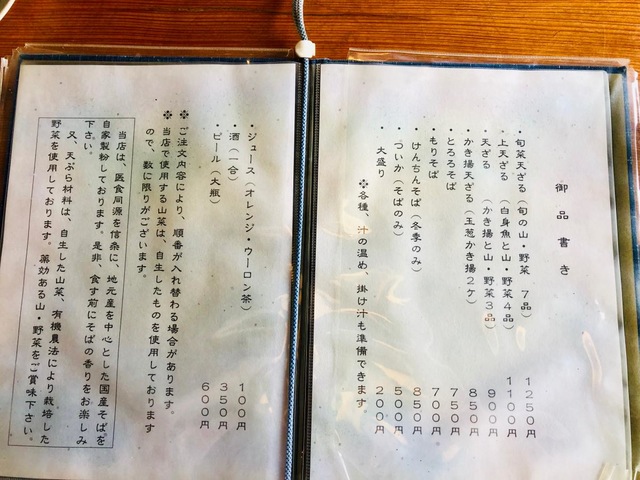 御品書き
・旬菜天ざる（旬の山・野菜 7品） 1250円
・上天ざる（白身魚と山・野菜4品） 1100円
・天ざる（かき揚と山・野菜3品） 900円
・かき揚天ざる（玉葱かき揚2ケ） 850円
・とろろそば 750円
・もりそば 700円
・けんちんそば（冬季のみ） 850円
・ついか（そばのみ） 500円
・大盛り 200円
※各種、汁の温め、掛け汁も準備できます。
・ジュース（オレンジ・ウーロン茶） 100円
・酒（一合） 350円
・ビール（大瓶） 600円
※ご注文内容により、順番が入れ替わる場合があります。
※当店で使用する山菜は、自生したものを使用しております
ので、数に限りがございます。
当店は、医食同源を信条に、地元産を中心とした国産そばを
自家製粉しております。是非、食す前にそばの香りをお楽しみ
下さい。
又、天ぷら材料は、自生した山菜、有機農法により栽培した
野菜を使用しております。薬効ある山・野菜をご賞味下さい。